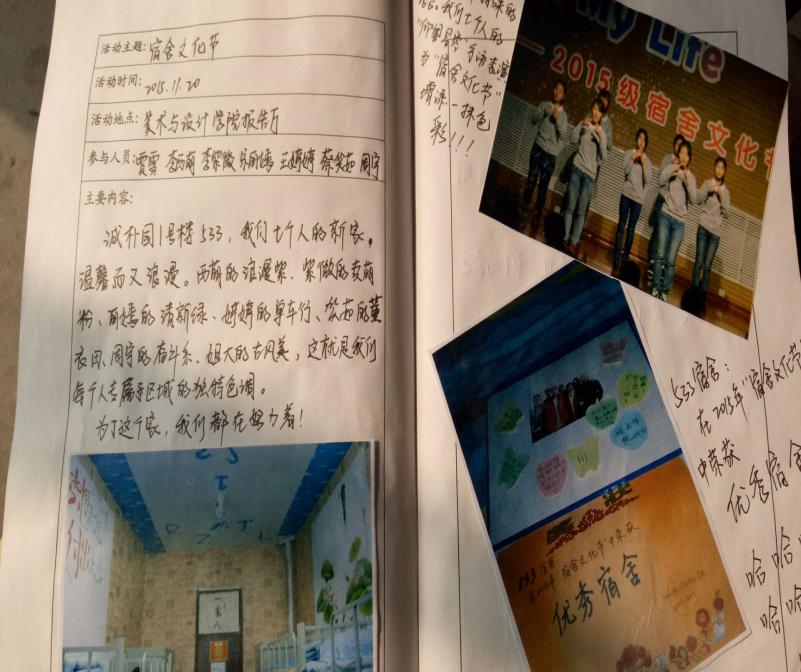 活动主题:宿舍文化节
活动时间:2015.11.20
活动地点:美术与设计学院报告厅
参与人员:贾雪 李西萌 李紫微 婷婷 周宇
主要内容:
诚朴园1号楼533,我们七个人的新家,
温馨而又浪漫。西萌的浪漫紫、紫微的卖萌
粉、丽嫣的清新绿、婷婷的单车行、笑茹的薰
衣田、周宇的奋斗系、姐大的古风美,这就是我们
每个人专属于区域的独特色调。
为了这个家,我们都在努力着!
梦想
付出
一家人
我们七个人的
手语表演
为"宿舍文化节"
增添一抹色
彩!!!
My Life
2015级宿舍文化节
533
533宿舍
"宿舍文化节"中荣获
优秀宿舍
533宿舍:
在2015年"宿舍文化节
中荣获
优秀宿舍
哈哈
哈哈